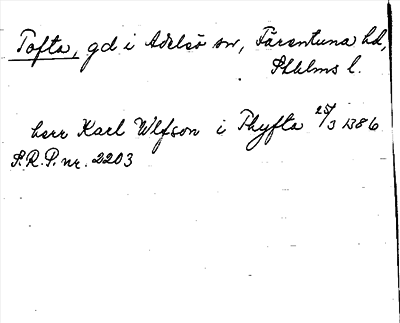 Tofta, gd i Adelsö sn, Färentuna hd,
Sthlms l.
herr Karl Ulfson i Thyfta 25/3 1386
S.R.P. nr. 2203